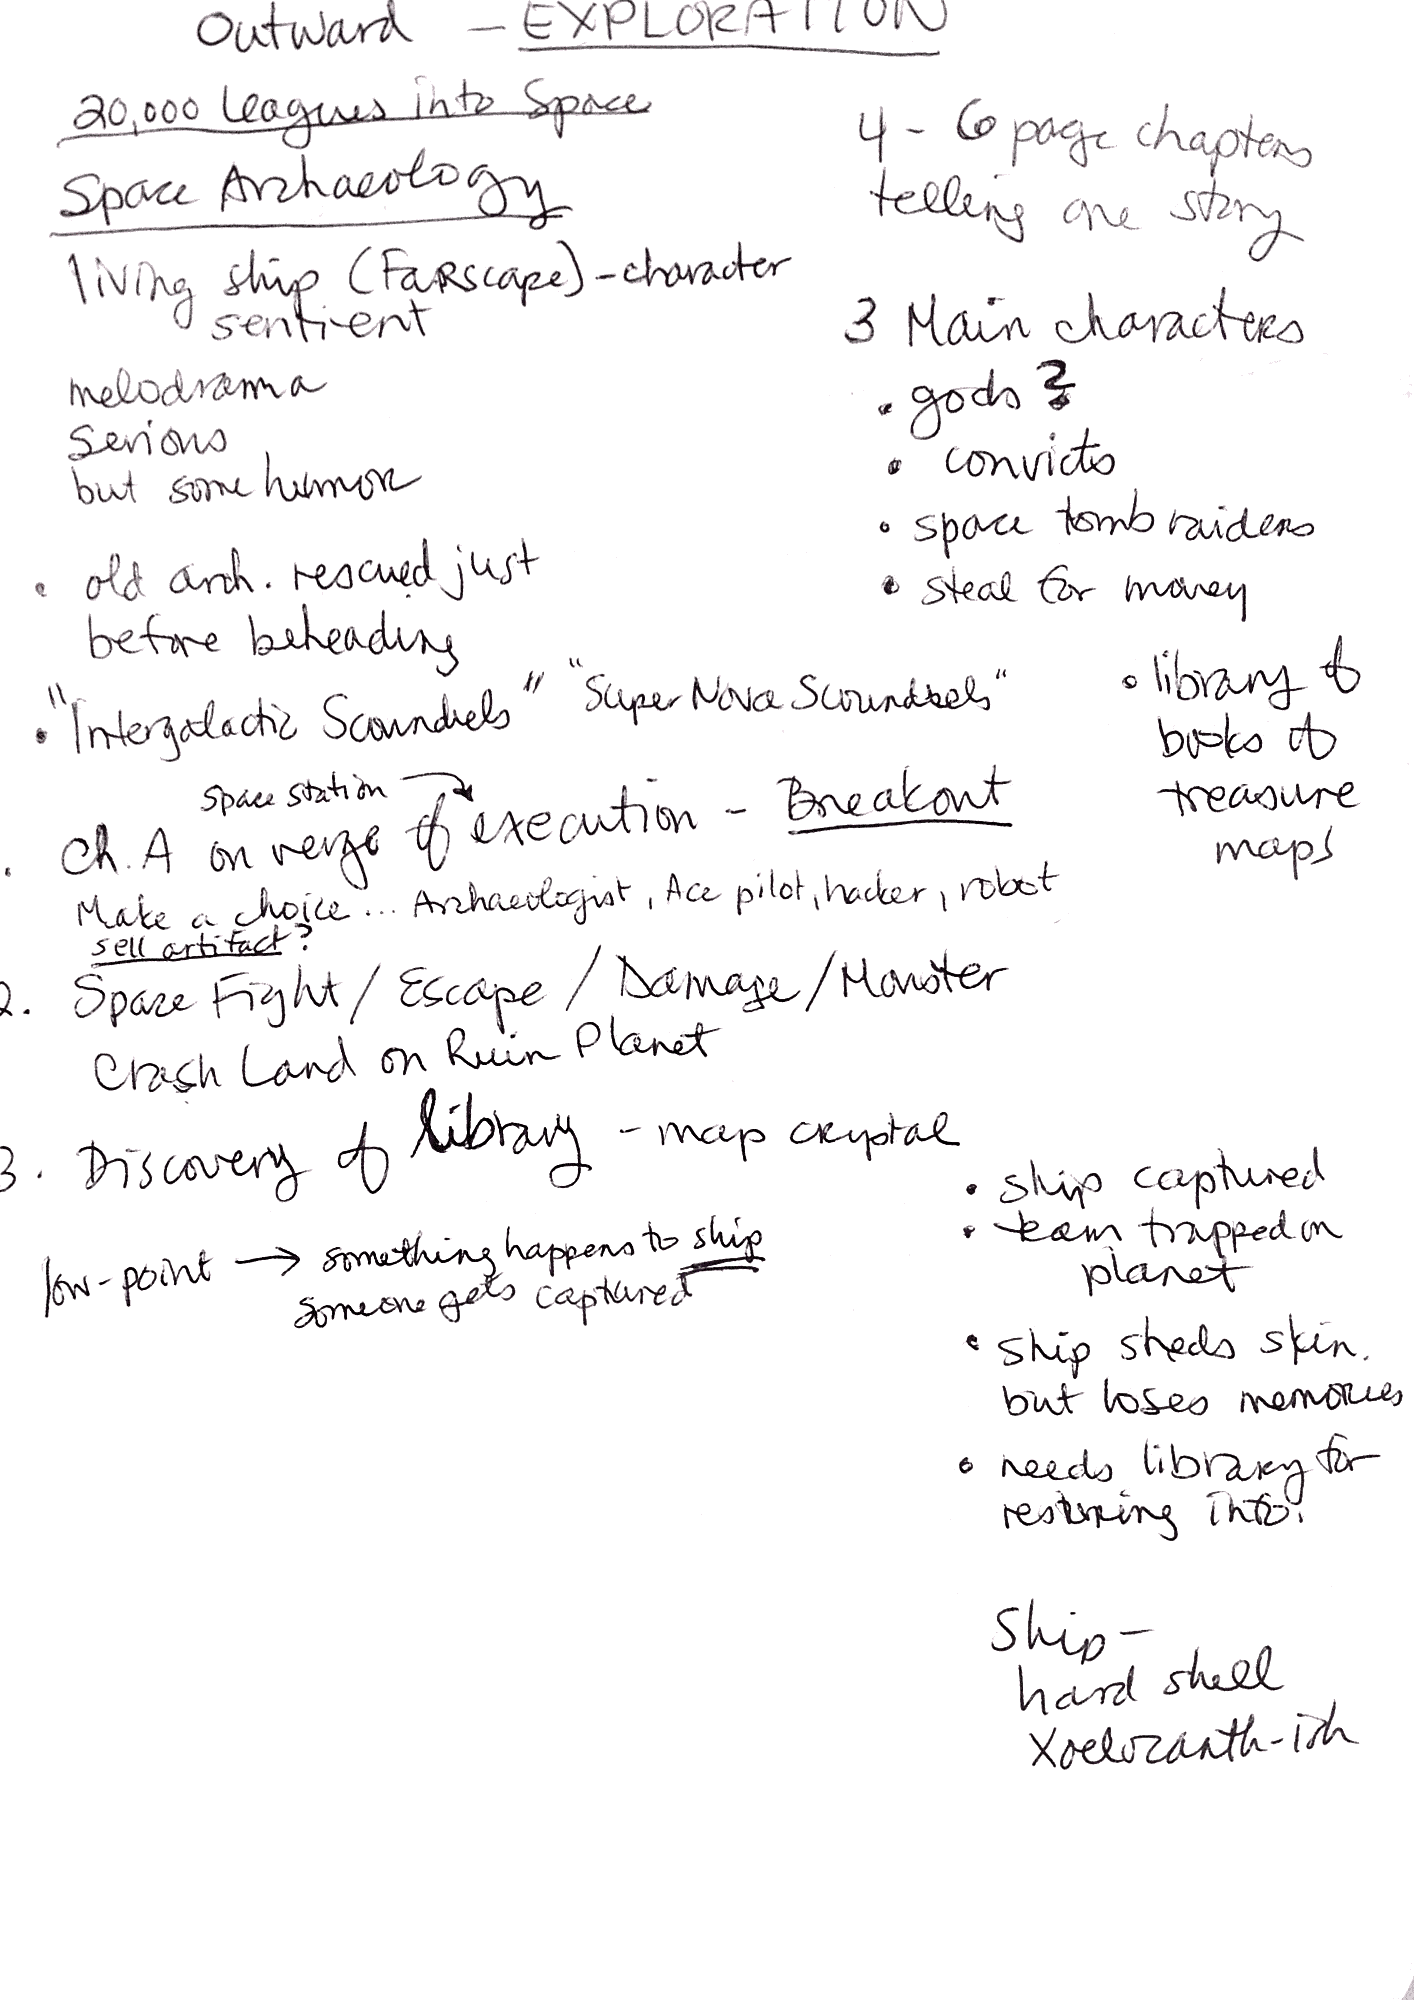 Outward - EXPLORATION
20,000 leagues into Space
Space Archaeology
living ship (Farscape) - character
sentient
melodrama
serious
but some humor
• old arch. rescued just
before beheading
• "Intergalactic Scoundrels" "Super Nova Scoundrels"
4 - 6 page chapters
telling one story
3 Main characters
• gods?
• convicts
• space tomb raiders
• steal for money
• library of
books of
treasure
maps
space station
. Ch. A on verge of execution - Breakout
Make a choice... Archaeologist, Ace pilot, hacker, robot
sell artifact?
2. Space Fight / Escape / Damage / Monster
Crash Land on Ruin Planet
3. Discovery of library - map crystal
low-point → something happens to ship
someone gets captured
• ship captured
• team trapped on
planet
• ship sheds skin.
but loses memories
• needs library for
restoring info.
Ship -
hard shell
Xoelozanth-ish